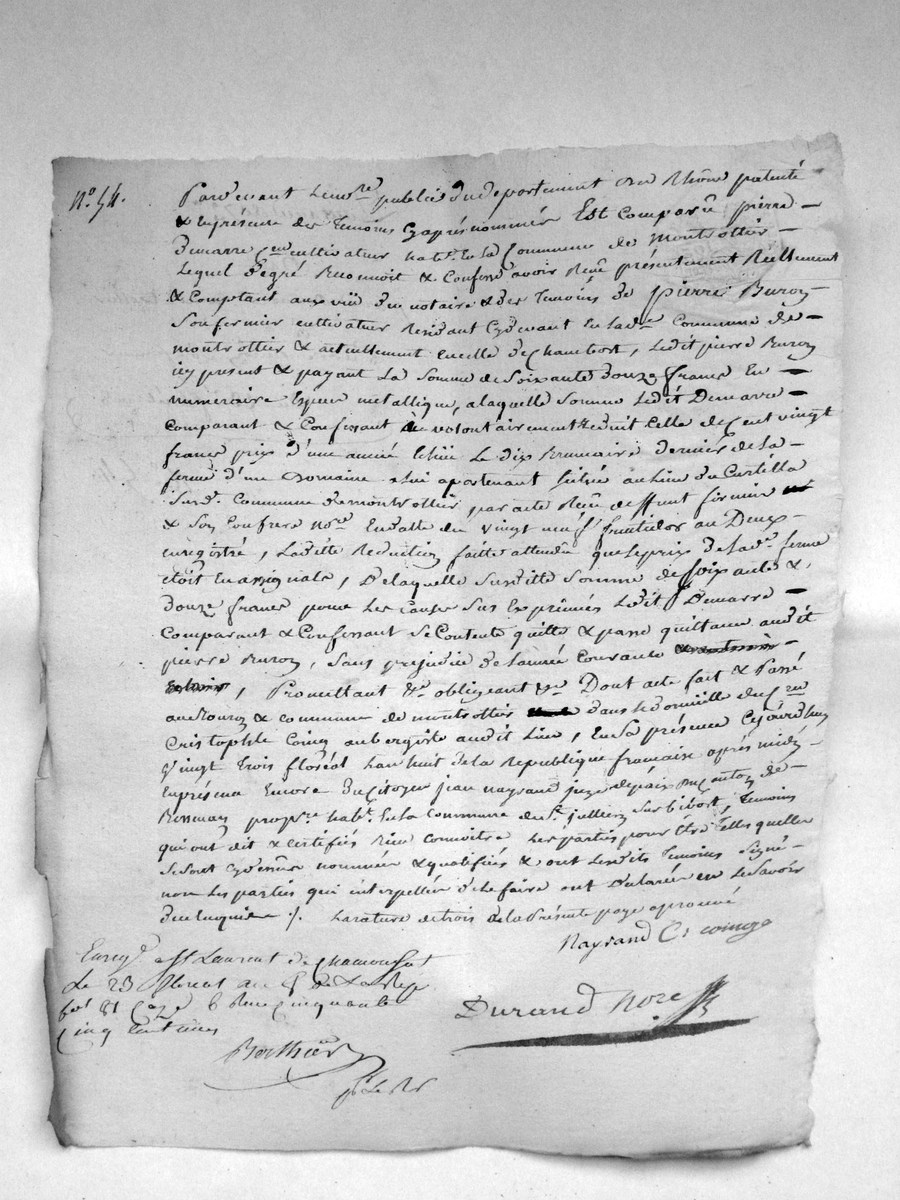 N.º 54.
Pardevant le no.re public du departement du Rhône patenté
& en présence des temoins cy après nommés Est comparû pierre
Dumarre c.en cultivateur hab.t de la Commune de Montrottier
Lequel de gré Reconnoit & Confesse avoir Reçu présentement Réellement
& Comptant aux vuë du notaire & des temoins de pierre Buron
Son fermier cultivateur Residant cydevant en lad.e Commune de
montrottier & actuellement en celle de Chambost, ledit pierre Buron
icy present & payant La Somme de Soixante douze francs En
numeraire Espece metallique, a laquelle Somme Ledit Dumarre
comparant & Confessant volontairement reduit Celle de Cent vingt
francs prix d'une année Echüe Le dix Brumaire dernier de La
ferme d'un Domaine a Lui apartenant Situé au Lieu du Curtilla
Sus d.e Commune de montrottier, par acte Reçu deffunt
& Son Confrere no.re En datte du vingt neuf fructidor an Deux
enregistré, Laditte Reduction faitte attendû que le prix de lad.e ferme
étoit En assignats, De laquelle Susditte Somme de Soixante &
douze francs pour Les Causes Sus Exprimées Ledit Dumarre
Comparant & Confessant Se Contente quitte & passe quittance audit
pierre Buron, Sans préjudice de l'année Courante
, Promettant &.a obligeant &.a Dont acte fait & Passé
au Bourg & commune de montrottier dans le domicille du c.en
Cristophle Coing aubergiste audit Lieu, En Sa présence Cejourd'huy
vingt trois floréal L'an huit de la Republique française après midy
En présence Encore du Citoyen jean nayrand juge de paix du canton de
Bessenay prop.re hab.t de la Commune de St. jullien Sur bibost, temoins
qui ont dit & certifiés Bien Connoitre Les parties pour être Telles quelles
Se Sont Cydessus nommées & qualifiées & ont Lesdits temoins Signé
non Les parties qui interpellées de Le faire ont Declarées ne Le Savoir
De ce Enquises ./. La rature de trois de la Présente page aprouvé
Nayrand C. coing
Enreg.é a St Laurent de Chamousset
Le 23 floreal an 8 de La Rep.
fol. 81 C.
cinq centimes
Durand No.re
Berthier